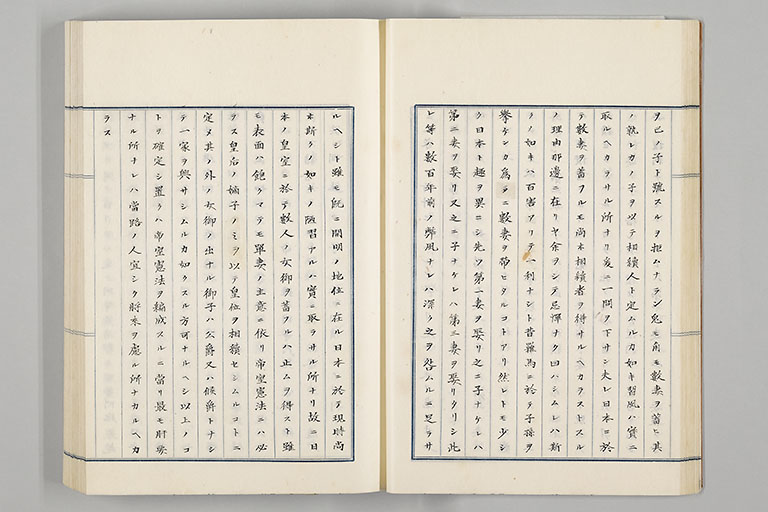 ヲ己ノ子ト號スルヲ拒ムナラン兎モ角モ數妻ヲ蓄ヒ其
ノ孰レカノ子ヲ以テ相續人ト定ムルカ如キ習風ハ實ニ
取ルヘカラサル所ナリ爰ニ一問ヲ下サン夫レ日本ニ於
テ數妻ヲ蓄フルモ尚ホ相續者ヲ得サルヘカラストスル
ノ理由那邊ニ在リヤ余ヲシテ忌憚ナク曰ハシムレハ斯
ノ如キハ百害アリテ一利ナシ昔羅馬ニ於テ子孫ヲ
擧ケンカ爲メニ數妻ヲ帶ヒタルコトアリ然レトモ少シ
ク日本ト趣ヲ異ニシ先ツ第一妻ヲ娶リ之ニ子ナケレハ
第二妻ヲ娶リ又之ニ子ナケレハ第三妻ヲ娶リタリシ此
レ等ハ數百年前ノ弊風ナレハ深ク之ヲ咎ムルニ足ラサ
ルヘシト雖モ既ニ開明ノ地位ニ在ル日本ニ於テ現時尚
ホ斯クノ如キノ陋習アルハ實ニ取ラサル所ナリ故ニ日
本ノ皇室ニ於テ數人ノ女御ヲ蓄フルハ止ムヲ得スト雖
モ表面ハ飽クマテモ單妻ノ主意ニ依リ帝室憲法ニハ必
ラス皇后ノ嫡子ノミヲ以テ皇位ヲ相續セシムルコトニ
定メ其ノ外ノ女御ノ出ナル御子ハ公爵又ハ侯爵トナシ
テ一家ヲ興サシムルカ如クスル方可ナルヘシ以上ノコ
トヲ確定シ置クハ帝室憲法ヲ編成スルニ當リ最モ肝要
ナル所ナレハ當路ノ人宜シク將來ヲ慮ル所ナカルヘカ
ラス